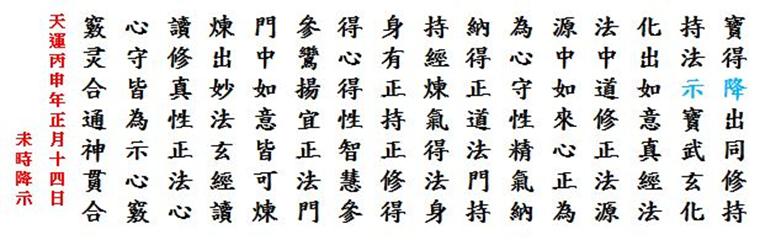 寶得降出同修持
持法示寶武玄化
化出如意真經法
法中道修正法源
源中如來心正為
為心守性精氣納
納得正道法門持
持經煉氣得法身
身有正持正修得
得心得性智慧參
參鸞揚宜正法門
門中如意皆可煉
煉出妙法玄經讀
讀修真性正法心
心守皆為示心竅
竅灵合通神貫合
天運丙申年正月十四日
未時降示